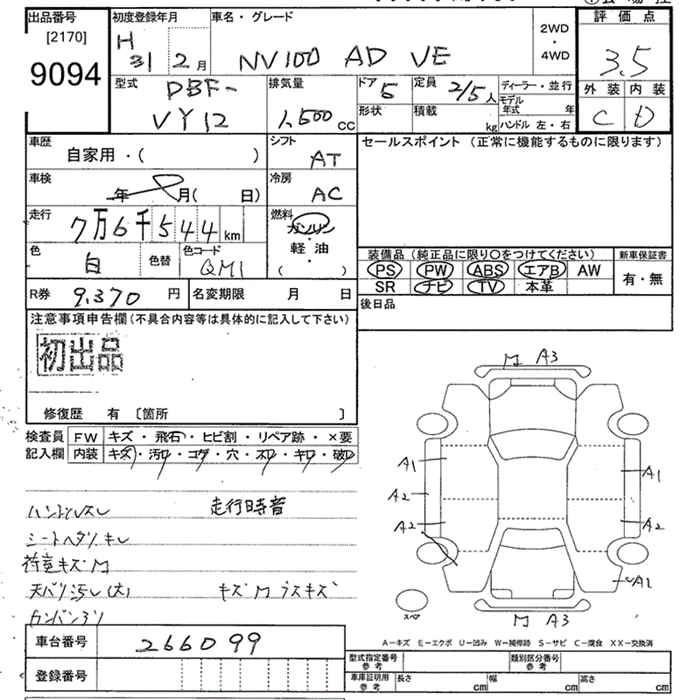 出品番号 初度登録年月 車名・グレード 2WD・4WD 評価点
[2170] 9094 H31 2月 NV100 AD VE 3.5
外装 内装
C D
型式 DBF-VY12 排気量 1,500 cc ドア 5 定員 2/5人 ディーラー・並行
形状 積載 kg モデル年式 年
ハンドル 左・右
車歴 自家用・( ) シフト AT セールスポイント (正常に機能するものに限ります)
車検 年 月( 日) 冷房 AC
走行 7万6千544km 燃料 ガソリン・軽油 ( )
色 白 色替 色コード QM1
装備品 (純正品に限り〇をつけてください) 新車保証書
PS PW ABS エアB AW 有・無
SR ナビ TV 本革
R券 9,370円 名変期限 月 日 後日品
注意事項申告欄(不具合内容等は具体的に記入して下さい)
初出品
修復歴 有 〔箇所 〕
検査員 FW キズ・飛石・ヒビ割・リペア跡・×要
記入欄 内装 キズ・汚れ・コゲ・穴・スレ・キレ・破れ
M A3
A1 A1
A2
A2 A2
A2
スペア
M A3
ハンドルスレ 走行時音
シートヘタリ キレ
荷室キズM
天バリ汚レ(大) キズM ラスキズ
カンバン
A-キズ E-エクボ U-凹み W-補修跡 S-サビ C-腐食 XX-交換済
車台番号 266099
型式指定番号 参考 類別区分番号 参考
登録番号 車庫証明用 参考 長さ cm 幅 cm 高さ cm